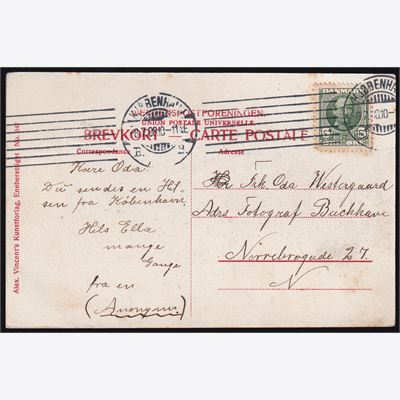 VERDENSPOSTFORENINGEN.
UNION POSTALE UNIVERSELLE.
BREVKORT — CARTE POSTALE
Correspondance
Adresse
DANMARK
5
KJØBENHAVN
Kære Oda!
Du sendes en Hil-
sen fra København.
Hils Ella
mange
Gange
fra en
(Anonym.)
Frk Oda Westergaard
Adrs Fotograf Buchhave
Nörrebrogade 27.
N
Alex. Vincent's Kunstforlag, Eneberettiget No.